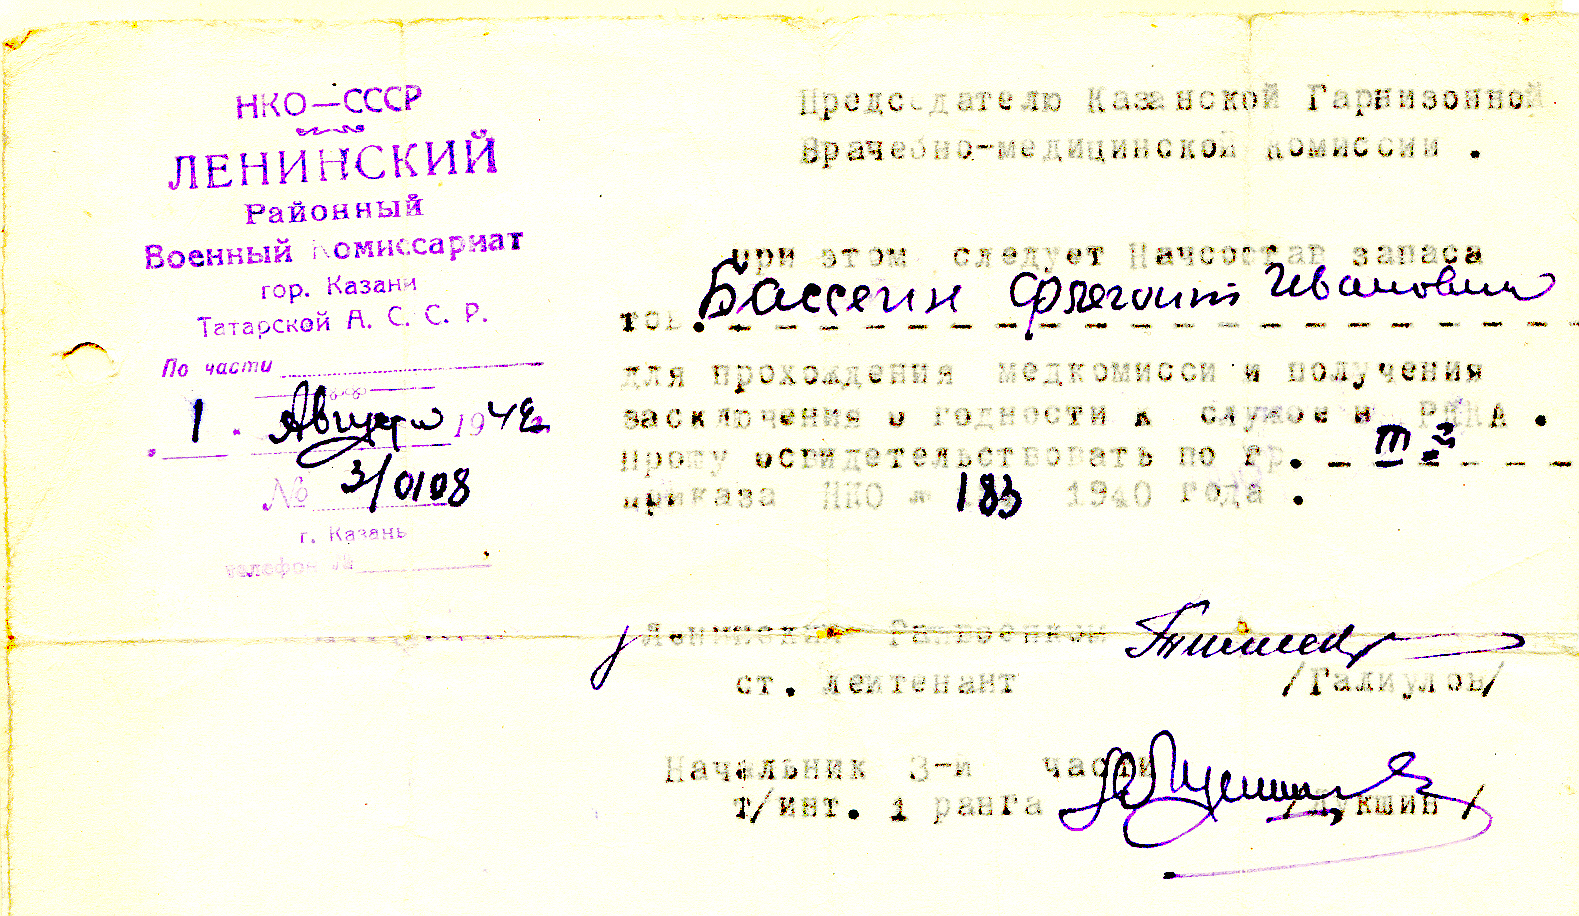 НКО—СССР
ЛЕНИНСКИЙ
Районный
Военный Комиссариат
гор. Казани
Татарской А. С. С. Р.
По части
1 Августа 1942
№ 3/0108
г. Казань
телефон №
Председателю Казанской Гарнизонной
Врачебно-медицинской комиссии .
при этом следует Начсостав запаса
тов. Бассеин Флегонт Иванович
для прохождения медкомисси и получения
засключения о годности к службе в РККА .
прошу освидетельствовать по гр. III
приказа НКО № 183 1940 года .
Ленинский Райвоенком
ст. лейтенант /Галиулов/
Начальник 3-й части
т/инт. 1 ранга /Лукшин/